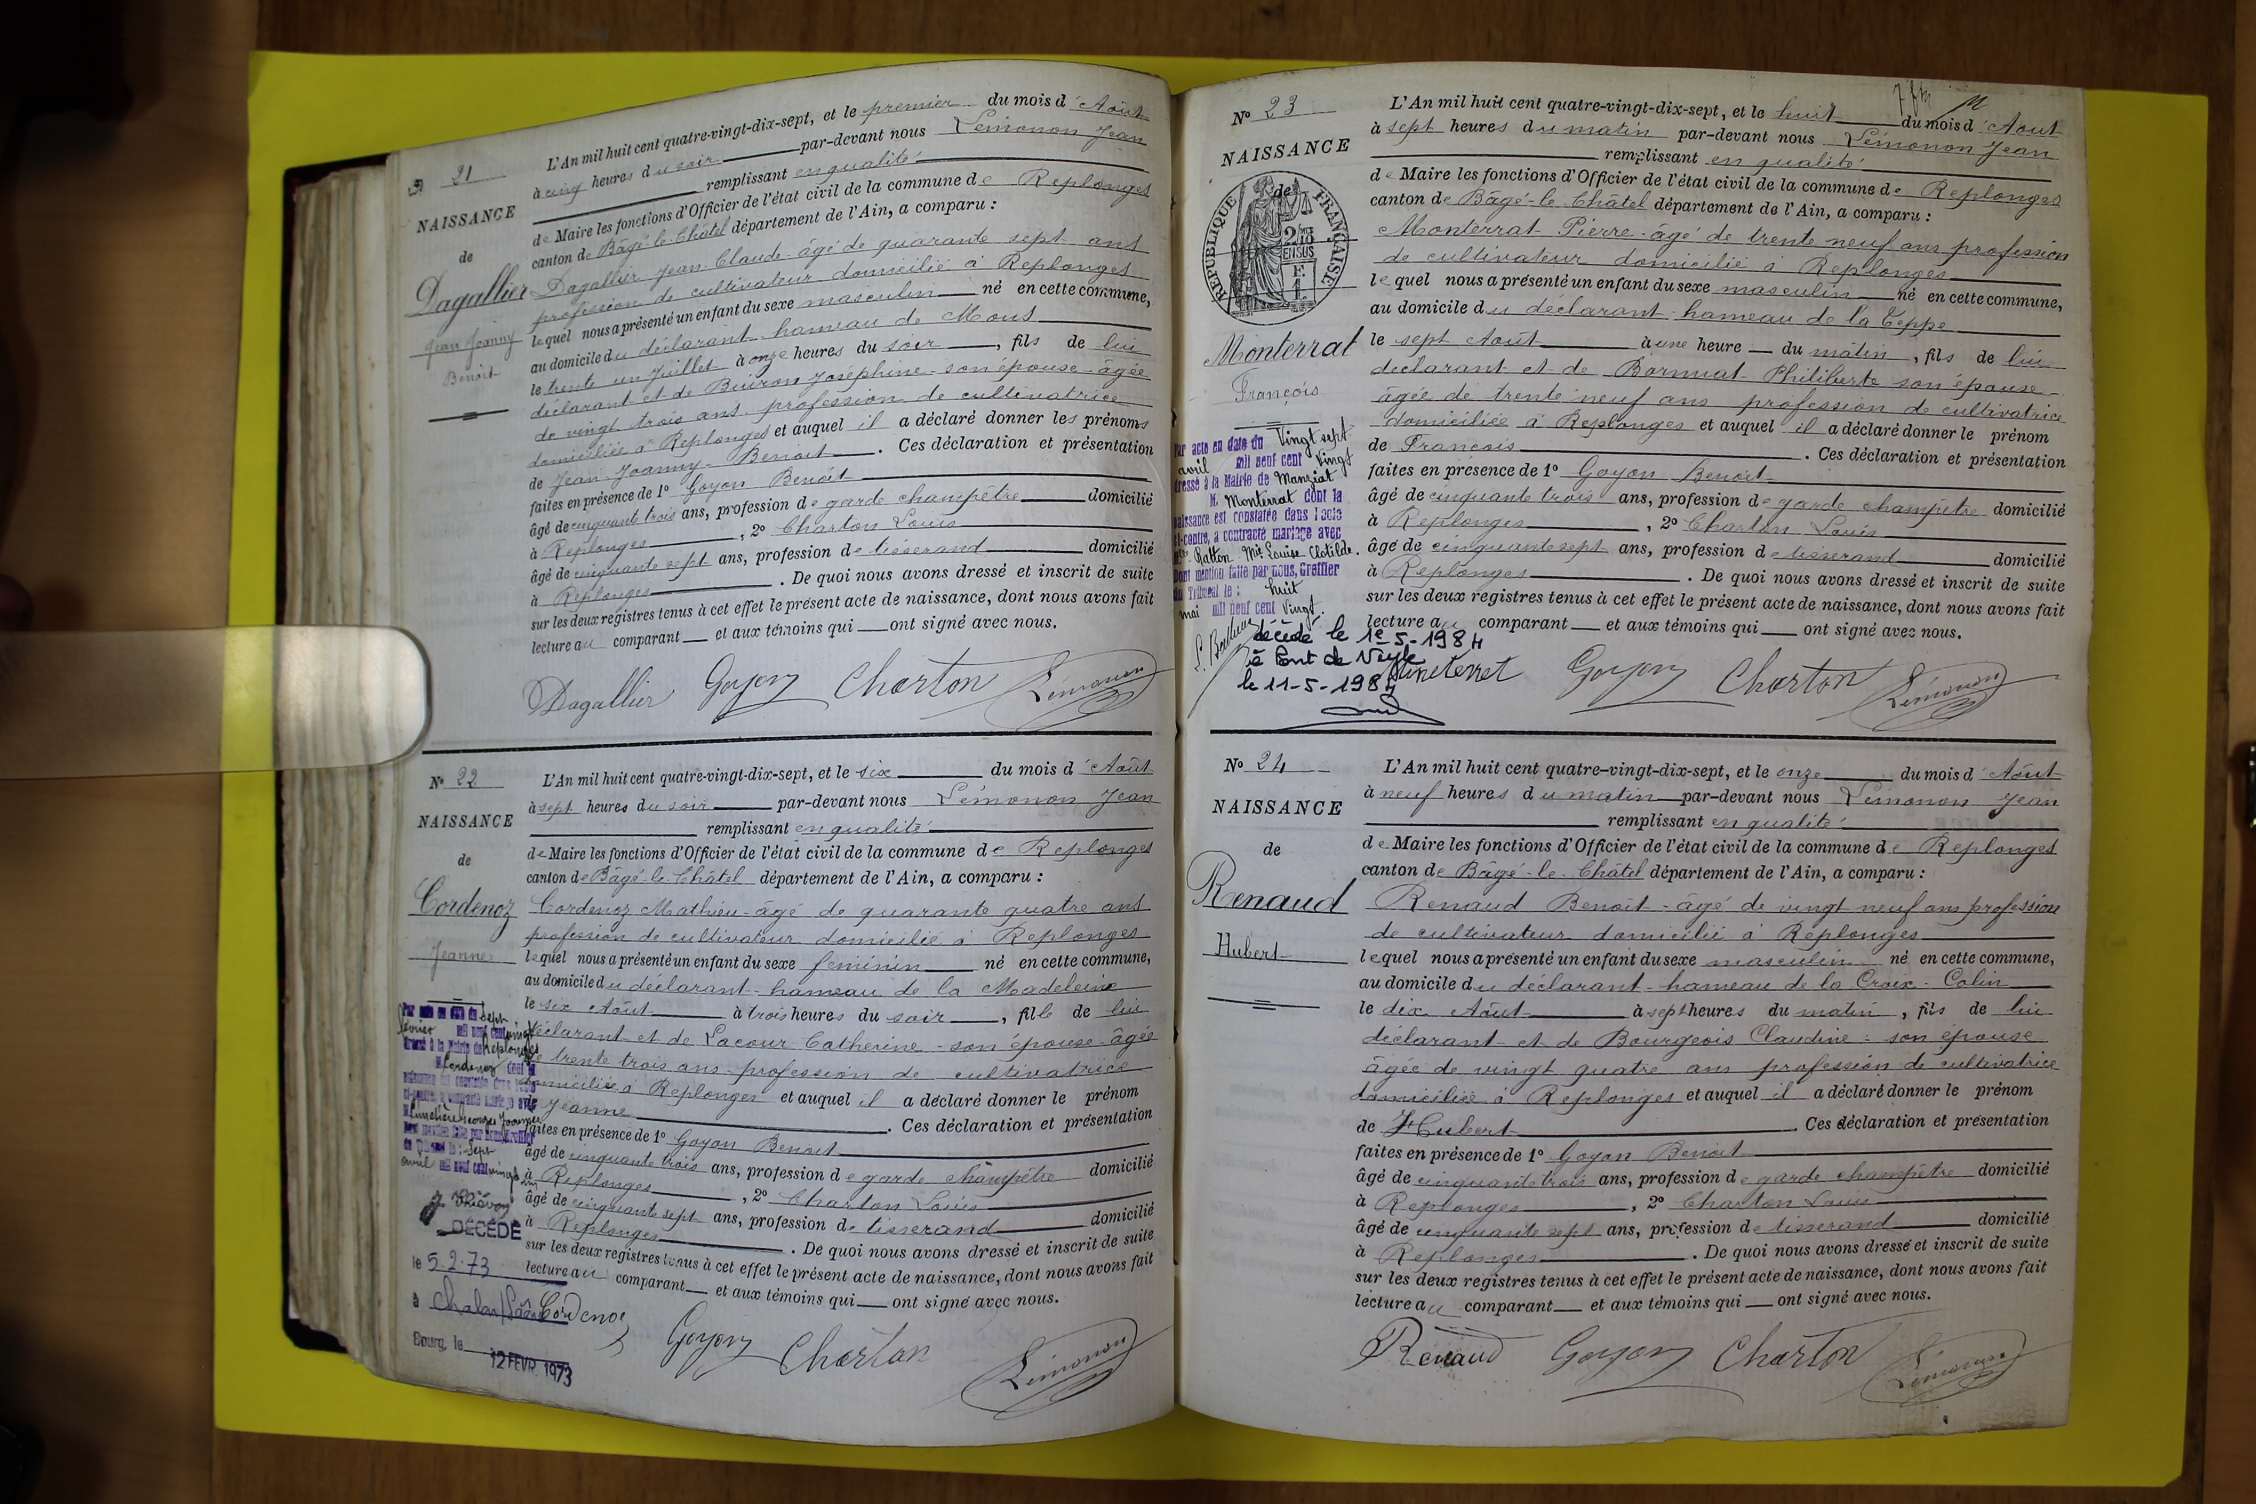 No 21
NAISSANCE
de
Dagallier
Jean Joanny
Benoit
L'An mil huit cent quatre-vingt-dix-sept, et le premier du mois d'Août
à cinq heures du soir par-devant nous Lémonon Jean
remplissant en qualité
de Maire les fonctions d'Officier de l'état civil de la commune de Replonges
canton de Bâgé-le-Châtel département de l'Ain, a comparu :
Dagallier Jean Claude âgé de quarante sept ans
profession de cultivateur domicilié à Replonges
lequel nous a présenté un enfant du sexe masculin né en cette commune,
au domicile du déclarant hameau de Mons
le trente un Juillet à onze heures du soir, fils de lui
déclarant et de Buiron Joséphine son épouse âgée
de vingt trois ans profession de cultivatrice
domiciliée à Replonges et auquel il a déclaré donner les prénoms
de Jean Joanny Benoit. Ces déclaration et présentation
faites en présence de 1º Goyon Benoit
âgé de cinquante trois ans, profession de garde champêtre domicilié
à Replonges, 2º Charton Louis
âgé de cinquante sept ans, profession de tisserand domicilié
à Replonges. De quoi nous avons dressé et inscrit de suite
sur les deux registres tenus à cet effet le présent acte de naissance, dont nous avons fait
lecture au comparant et aux témoins qui ont signé avec nous.
Dagallier Goyon Charton Lémonon
No 22
NAISSANCE
de
Cordenoz
Jeanne
Par acte en date du sept
février mil neuf cent vingt
dressé à la Mairie de Replonges
Cordenoz dont la
naissance est constatée dans l'acte
ci-contre, a contracté mariage avec
Dont mention faite par nous, Greffier
du Tribunal le : sept
avril mil neuf cent vingt
DÉCÉDÉ
le 5.2.73
à Chalon s/Saône
Bourg, le 12 FEVR. 1973
L'An mil huit cent quatre-vingt-dix-sept, et le six du mois d'Août
à sept heures du soir par-devant nous Lémonon Jean
remplissant en qualité
de Maire les fonctions d'Officier de l'état civil de la commune de Replonges
canton de Bâgé-le-Châtel département de l'Ain, a comparu :
Cordenoz Mathieu âgé de quarante quatre ans
profession de cultivateur domicilié à Replonges
lequel nous a présenté un enfant du sexe féminin né en cette commune,
au domicile du déclarant hameau de la Madeleine
le six Août à trois heures du soir, fille de lui
déclarant et de Lacour Catherine son épouse âgée
de trente trois ans profession de cultivatrice
domiciliée à Replonges et auquel il a déclaré donner le prénom
de Jeanne. Ces déclaration et présentation
faites en présence de 1º Goyon Benoit
âgé de cinquante trois ans, profession de garde champêtre domicilié
à Replonges, 2º Charton Louis
âgé de cinquante sept ans, profession de tisserand domicilié
à Replonges. De quoi nous avons dressé et inscrit de suite
sur les deux registres tenus à cet effet le présent acte de naissance, dont nous avons fait
lecture au comparant et aux témoins qui ont signé avec nous.
Cordenoz Goyon Charton Lémonon
No 23
NAISSANCE
de
RÉPUBLIQUE FRANÇAISE
Monterrat
François
Par acte en date du vingt sept
avril mil neuf cent vingt
dressé à la Mairie de Manziat
M. Monterrat dont la
naissance est constatée dans l'acte
ci-contre, a contracté mariage avec
Ratton Mie Louise Clotilde.
Dont mention faite par nous, Greffier
du Tribunal le : huit
mai mil neuf cent vingt.
décédé le 1e-5-1984
à Pont de Veyle
le 11-5-1984
L'An mil huit cent quatre-vingt-dix-sept, et le huit du mois d'Août
à sept heures du matin par-devant nous Lémonon Jean
remplissant en qualité
de Maire les fonctions d'Officier de l'état civil de la commune de Replonges
canton de Bâgé-le-Châtel département de l'Ain, a comparu :
Monterrat Pierre âgé de trente neuf ans profession
de cultivateur domicilié à Replonges
lequel nous a présenté un enfant du sexe masculin né en cette commune,
au domicile du déclarant hameau de la Teppe
le sept Août à une heure du matin, fils de lui
déclarant et de Bornuat Philiberte son épouse
âgée de trente neuf ans profession de cultivatrice
domiciliée à Replonges et auquel il a déclaré donner le prénom
de François. Ces déclaration et présentation
faites en présence de 1º Goyon Benoit
âgé de cinquante trois ans, profession de garde champêtre domicilié
à Replonges, 2º Charton Louis
âgé de cinquante sept ans, profession de tisserand domicilié
à Replonges. De quoi nous avons dressé et inscrit de suite
sur les deux registres tenus à cet effet le présent acte de naissance, dont nous avons fait
lecture au comparant et aux témoins qui ont signé avec nous.
Goyon Charton Lémonon
No 24
NAISSANCE
de
Renaud
Hubert
L'An mil huit cent quatre-vingt-dix-sept, et le onze du mois d'Août
à neuf heures du matin par-devant nous Lémonon Jean
remplissant en qualité
de Maire les fonctions d'Officier de l'état civil de la commune de Replonges
canton de Bâgé-le-Châtel département de l'Ain, a comparu :
Renaud Benoit âgé de vingt neuf ans profession
de cultivateur domicilié à Replonges
lequel nous a présenté un enfant du sexe masculin né en cette commune,
au domicile du déclarant hameau de la Croix-Colin
le dix Août à sept heures du matin, fils de lui
déclarant et de Bourgeois Claudine son épouse
âgée de vingt quatre ans profession de cultivatrice
domiciliée à Replonges et auquel il a déclaré donner le prénom
de Hubert. Ces déclaration et présentation
faites en présence de 1º Goyon Benoit
âgé de cinquante trois ans, profession de garde champêtre domicilié
à Replonges, 2º Charton Louis
âgé de cinquante sept ans, profession de tisserand domicilié
à Replonges. De quoi nous avons dressé et inscrit de suite
sur les deux registres tenus à cet effet le présent acte de naissance, dont nous avons fait
lecture au comparant et aux témoins qui ont signé avec nous.
Renaud Goyon Charton Lémonon